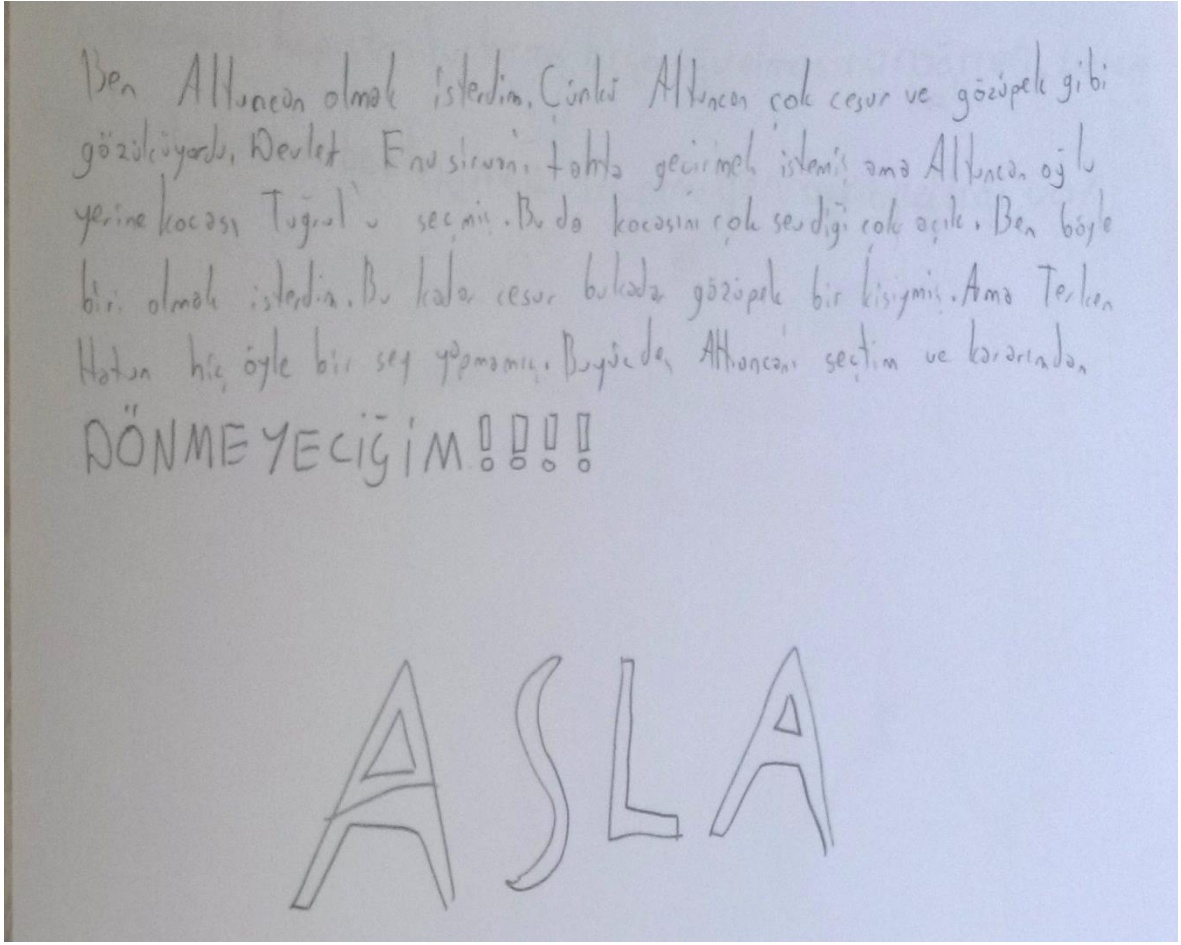 Ben Altuncan olmak isterdim. Çünkü Altuncan çok cesur ve gözüpek gibi
gözüküyordu. Devlet Enuşirvanı tahta geçirmek istemiş ama Altuncan oğlu
yerine kocası Tuğrul'u seçmiş. Bu da kocasını çok sevdiği çok açık. Ben böyle
biri olmak isterdim. Bu kadar cesur bukadar gözüpek bir kişiymiş. Ama Terken
Hatun hiç öyle bir şey yapmamış. Buyüzden Altuncanı seçtim ve kararından
DÖNMEYECİĞİM!!!!
ASLA